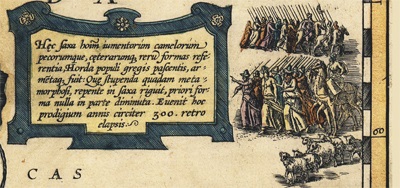 D A
Hęc saxa hoim̄ iumentorum camelorum
pecorumque, cęterarumq̧ rerū formas refe
rentia, Horda populi gregis pascentis, ar=
mētaq̧ fuit: Quę stupenda quadam meta=
morphosi, repente in saxa riguit, priori for
ma nulla in parte diminuta. Euenit hoc
prodigium annis circiter 300. retro
elapsis.
60
CAS